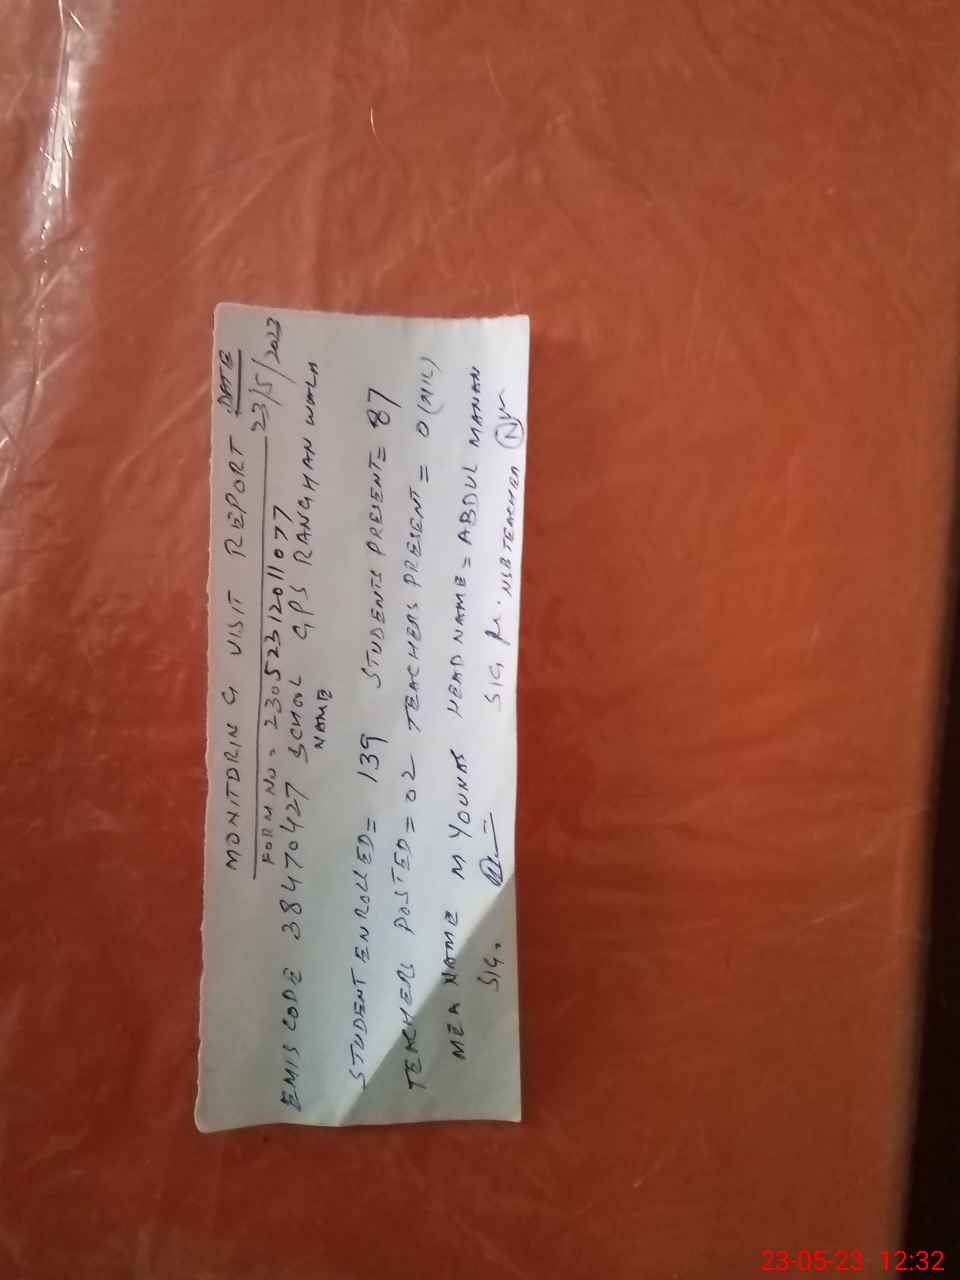 MONITORING VISIT REPORT DATE
FORM NO = 23052312011077 23/5/2023
EMIS CODE 38470427 SCHOOL GPS RANGHAN WALA
NAME
STUDENT ENROLLED = 139 STUDENTS PRESENT = 87
TEACHERS POSTED = 02 TEACHERS PRESENT = 0 (NIL)
MEA NAME M YOUNAS HEAD NAME = ABDUL MANAN
SIG. SIG NSB TEACHER
23-05-23 12:32